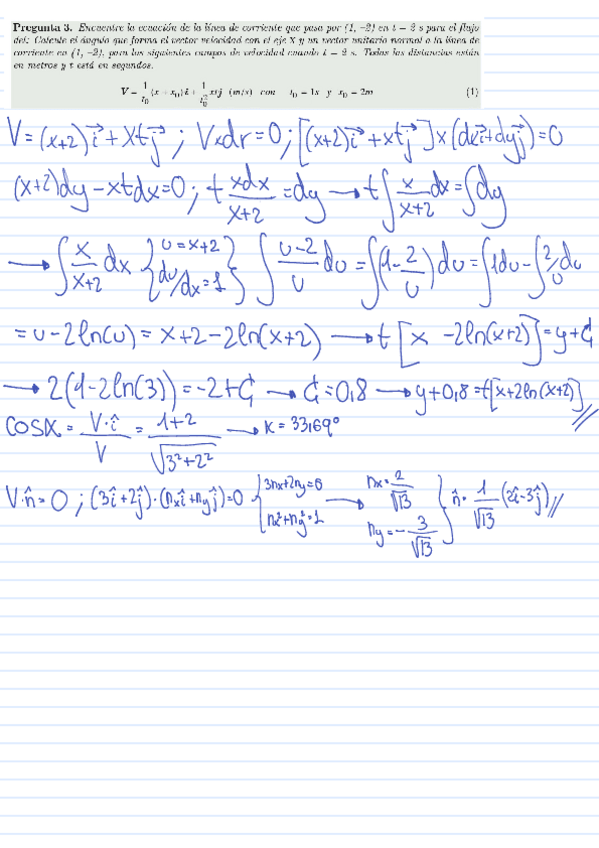 Pregunta 3. Encuentre la ecuación de la línea de corriente que pasa por (1, −2) en t = 2 s para el flujo
del: Calcule el ángulo que forma el vector velocidad con el eje X y un vector unitario normal a la línea de
corriente en (1, −2), para los siguientes campos de velocidad cuando t = 2 s. Todas las distancias están
en metros y t está en segundos.
V = 1/t₀ (x + x₀) i + 1/t₀² xtj (m/s) con t₀ = 1s y x₀ = 2m (1)
V = (x+2)i⃗ + xtj⃗ ; V×dr = 0 ; [(x+2)i⃗ + xtj⃗] × (dxi⃗ + dyj⃗) = 0
(x+2)dy − xtdx = 0 ; t xdx/x+2 = dy → t∫ x/x+2 dx = ∫dy
→ ∫ x/x+2 dx { u = x+2 du/dx = 1 } ∫ u−2/u du = ∫(1−2/u) du = ∫1du − ∫2/u du
= u − 2ln(u) = x+2−2ln(x+2) → t [x −2ln(x+2)] = y + C
→ 2(1−2ln(3)) = −2+C → C = 0,8 → y+0,8 = t[x+2ln(x+2)]
COSα = V·î/V = 1+2/√3²+2² → α = 33,69°
V·n̂ = 0 ; (3î+2ĵ)·(nxî+nyĵ) = 0 { 3nx+2ny=0 nx²+ny²=1 → nx = 2/√13 ny = −3/√13 } n̂ = 1/√13 (2î−3ĵ)